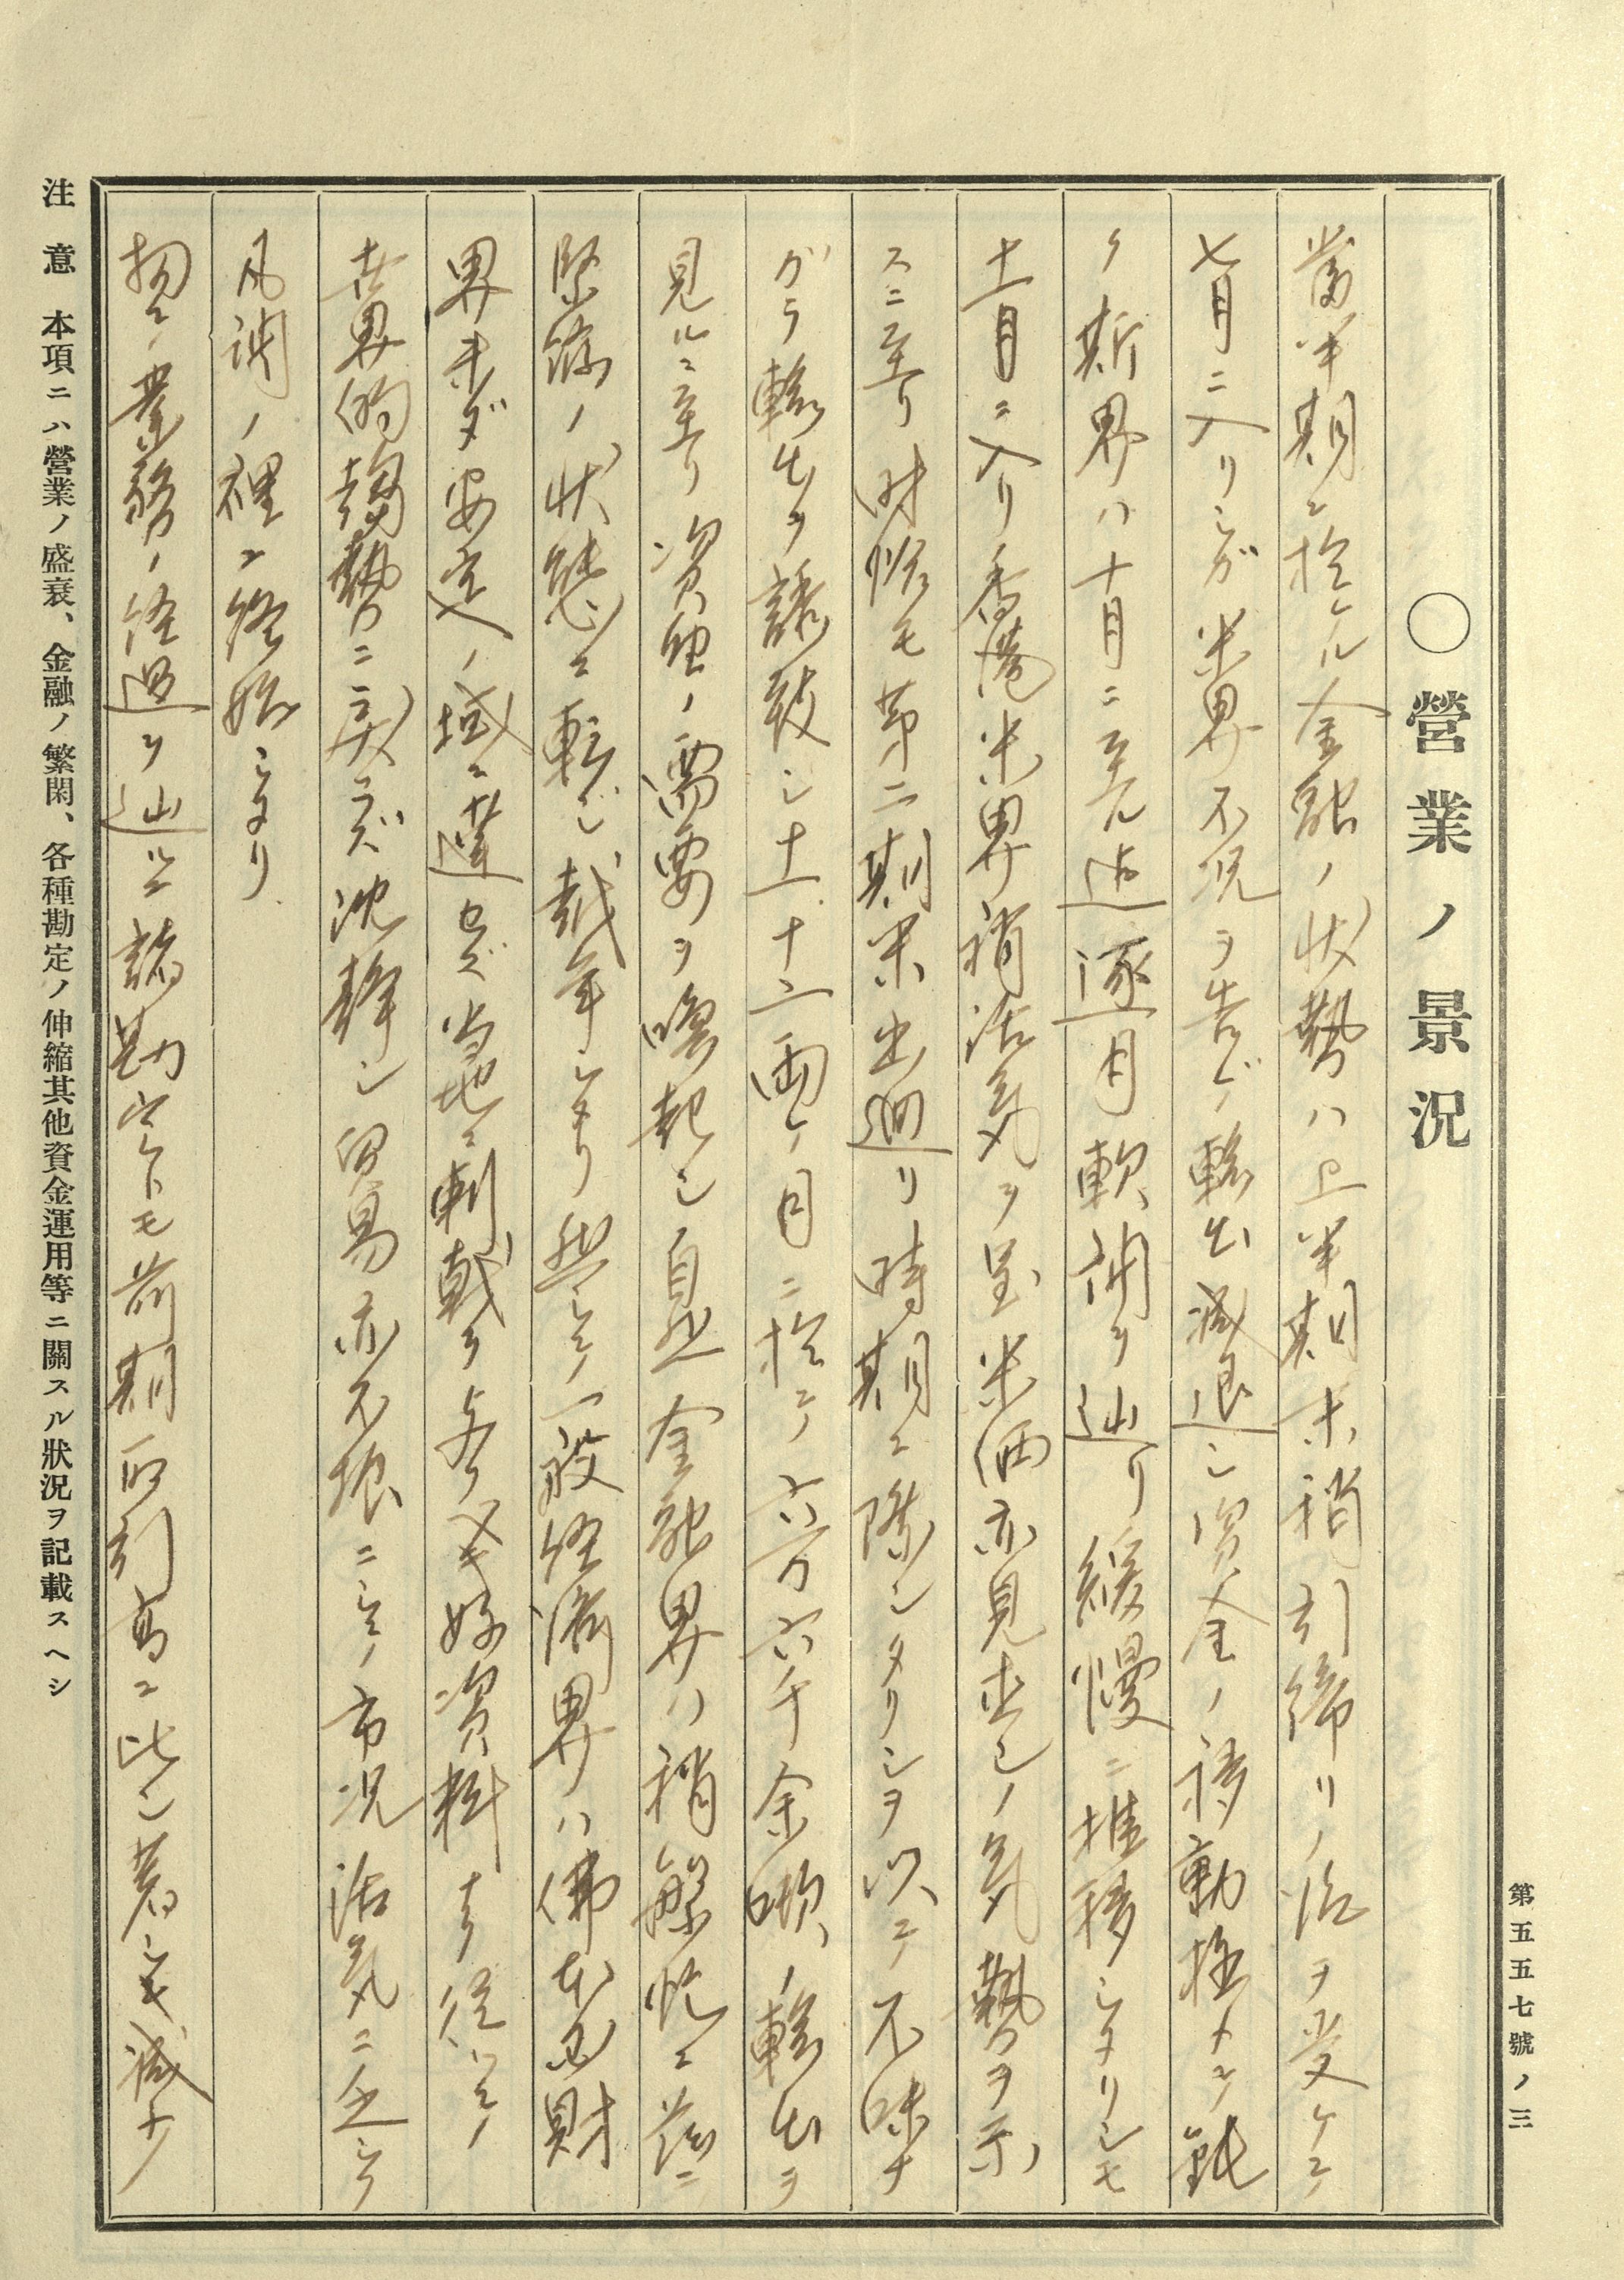 第五五七號ノ三
〇營業ノ景況
當半期ニ於ケル金融ノ狀勢ハ上半期末稍引締リノ後ヲ受ケテ
七月ニ入リシガ米界不況ヲ告ゲ輸出減退シ資金ノ移動極メテ鈍
ク斯界ハ十月ニ至ル迄逐月軟調ヲ辿リ緩慢ニ推移シタリシモ
十一月ニ入リ香港米界稍活気ヲ呈シ米価亦見直シノ気勢ヲ示
スニ至リ時恰モ第二期米出廻リ時期ニ際シタリシヲ以テ不味ナ
ガラ輸出ヲ誘致シ十一、十二両ケ月ニ於テ六万六千余噸ノ輸出ヲ
見ルニ至リ資金ノ需要ヲ喚起シ自然金融界ハ稍繁忙ニ茲ニ
緊縮ノ狀態ニ転ジ越年シタリ然シテ一般経済界ハ佛本国財
界未ダ安定ノ域ニ達セズ当地ニ刺戟ヲ与フベキ好資料ナク従ツテ
世界的趨勢ニ戻ラズ沈静シ貿易亦不振ニシテ市況活気ニ乏シク
凡調ノ裡ニ終始シタリ
扨テ業務ノ経過ヲ辿ルニ諸勘定ハ何レモ前期取引高ニ比シ著シキ減少
注意　本項ニハ營業ノ盛衰、金融ノ繁閑、各種勘定ノ伸縮其他資金運用等ニ關スル狀況ヲ記載スヘシ